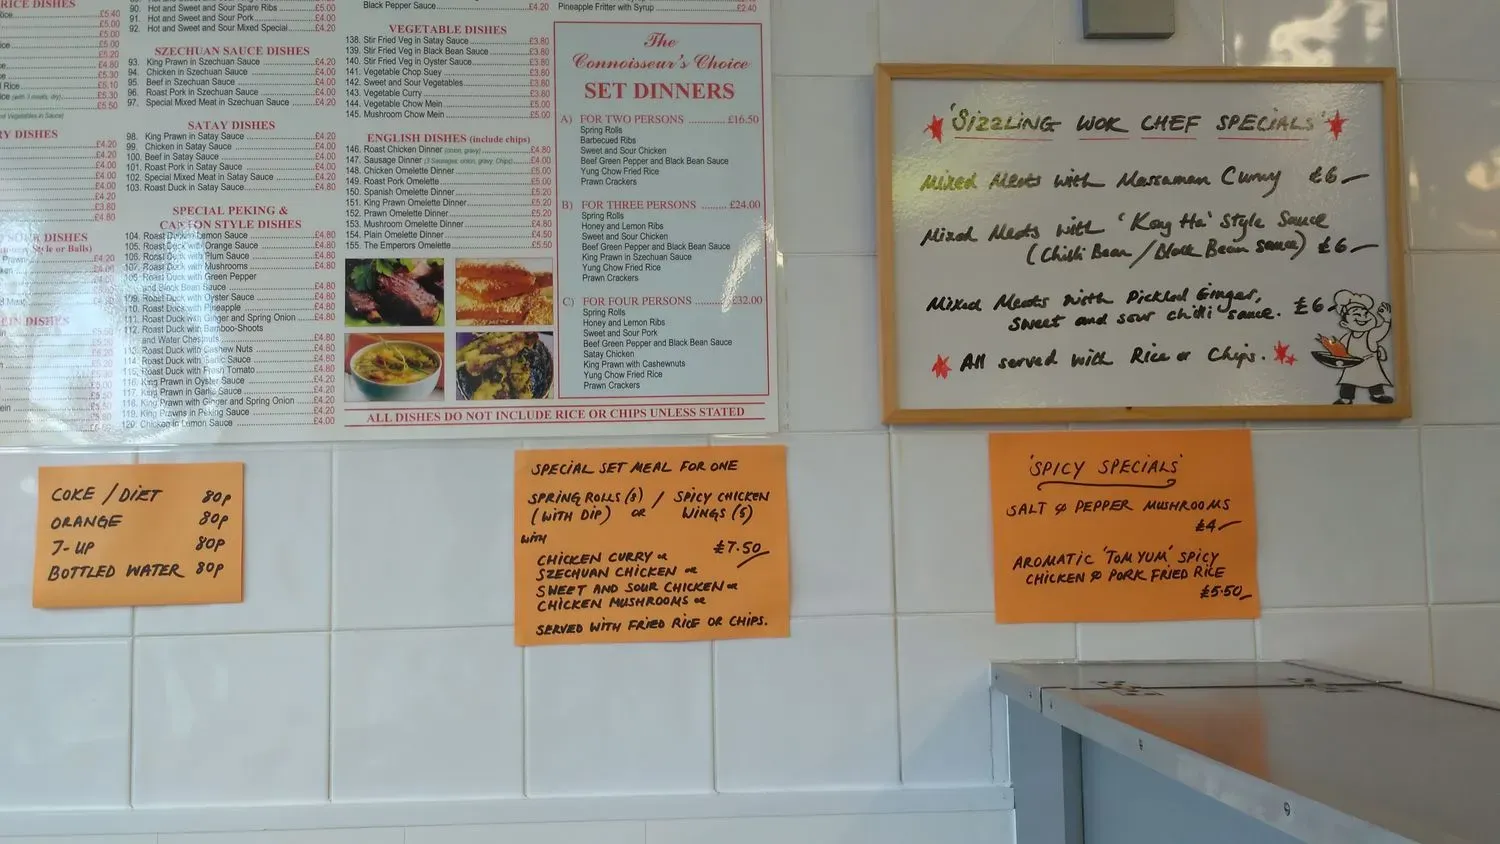 RICE DISHES
£5.40
£5.00
£5.00
£5.00
£5.20
£4.80
£5.10
£5.30
£5.50
RY DISHES
£4.20
£4.20
£4.00
£4.00
£4.00
£4.20
£3.80
£4.80
DISHES
Style or Balls)
£4.20
90. Hot and Sweet and Sour Spare Ribs £5.00
91. Hot and Sweet and Sour Pork £4.00
92. Hot and Sweet and Sour Mixed Special £4.20
SZECHUAN SAUCE DISHES
93. King Prawn in Szechuan Sauce £4.20
94. Chicken in Szechuan Sauce £4.00
95. Beef in Szechuan Sauce £4.00
96. Roast Pork in Szechuan Sauce £4.00
97. Special Mixed Meat in Szechuan Sauce £4.20
SATAY DISHES
98. King Prawn in Satay Sauce £4.20
99. Chicken in Satay Sauce £4.00
100. Beef in Satay Sauce £4.00
101. Roast Pork in Satay Sauce £4.00
102. Special Mixed Meat in Satay Sauce £4.20
103. Roast Duck in Satay Sauce £4.80
SPECIAL PEKING &
CANTON STYLE DISHES
104. Roast Duck in Lemon Sauce £4.80
105. Roast Duck with Orange Sauce £4.80
106. Roast Duck with Plum Sauce £4.80
107. Roast Duck with Mushrooms £4.80
108. Roast Duck with Green Pepper
and Black Bean Sauce £4.80
109. Roast Duck with Oyster Sauce £4.80
110. Roast Duck with Pineapple £4.80
111. Roast Duck with Ginger and Spring Onion £4.80
112. Roast Duck with Bamboo-Shoots
and Water Chestnuts £4.80
113. Roast Duck with Cashew Nuts £4.80
114. Roast Duck with Garlic Sauce £4.80
115. Roast Duck with Fresh Tomato £4.80
116. King Prawn in Oyster Sauce £4.20
117. King Prawn in Garlic Sauce £4.20
118. King Prawn with Ginger and Spring Onion £4.20
119. King Prawns in Peking Sauce £4.20
120. Chicken in Lemon Sauce £4.00
Black Pepper Sauce £4.20
VEGETABLE DISHES
138. Stir Fried Veg in Satay Sauce £3.80
139. Stir Fried Veg in Black Bean Sauce £3.80
140. Stir Fried Veg in Oyster Sauce £3.80
141. Vegetable Chop Suey £3.80
142. Sweet and Sour Vegetables £3.80
143. Vegetable Curry £3.80
144. Vegetable Chow Mein £5.00
145. Mushroom Chow Mein £5.00
ENGLISH DISHES (include chips)
146. Roast Chicken Dinner (onion, gravy) £4.80
147. Sausage Dinner (3 Sausages, onion, gravy, Chips) £4.00
148. Chicken Omelette Dinner £5.00
149. Roast Pork Omelette £5.00
150. Spanish Omelette Dinner £5.20
151. King Prawn Omelette Dinner £5.20
152. Prawn Omelette Dinner £5.20
153. Mushroom Omelette Dinner £4.80
154. Plain Omelette Dinner £4.50
155. The Emperors Omelette £5.50
Pineapple Fritter with Syrup £2.40
The
Connoisseur's Choice
SET DINNERS
A) FOR TWO PERSONS £16.50
Spring Rolls
Barbecued Ribs
Sweet and Sour Chicken
Beef Green Pepper and Black Bean Sauce
Yung Chow Fried Rice
Prawn Crackers
B) FOR THREE PERSONS £24.00
Spring Rolls
Honey and Lemon Ribs
Sweet and Sour Chicken
Beef Green Pepper and Black Bean Sauce
King Prawn in Szechuan Sauce
Yung Chow Fried Rice
Prawn Crackers
C) FOR FOUR PERSONS £32.00
Spring Rolls
Honey and Lemon Ribs
Sweet and Sour Pork
Beef Green Pepper and Black Bean Sauce
Satay Chicken
King Prawn with Cashewnuts
Yung Chow Fried Rice
Prawn Crackers
ALL DISHES DO NOT INCLUDE RICE OR CHIPS UNLESS STATED
'SIZZLING WOK CHEF SPECIALS'
Mixed Meats with Massaman Curry £6—
Mixed Meats with 'Kong Ha' Style Sauce
(Chilli Bean / Black Bean sauce) £6—
Mixed Meats with Pickled Ginger,
sweet and sour chilli sauce. £6—
All served with Rice or Chips.
COKE / DIET 80p
ORANGE 80p
7-UP 80p
BOTTLED WATER 80p
SPECIAL SET MEAL FOR ONE
SPRING ROLLS (8) / SPICY CHICKEN
(WITH DIP) OR WINGS (5)
WITH
£7.50
CHICKEN CURRY OR
SZECHUAN CHICKEN OR
SWEET AND SOUR CHICKEN OR
CHICKEN MUSHROOMS OR
SERVED WITH FRIED RICE OR CHIPS.
'SPICY SPECIALS'
SALT & PEPPER MUSHROOMS
£4—
AROMATIC 'TOM YUM' SPICY
CHICKEN & PORK FRIED RICE
£5.50